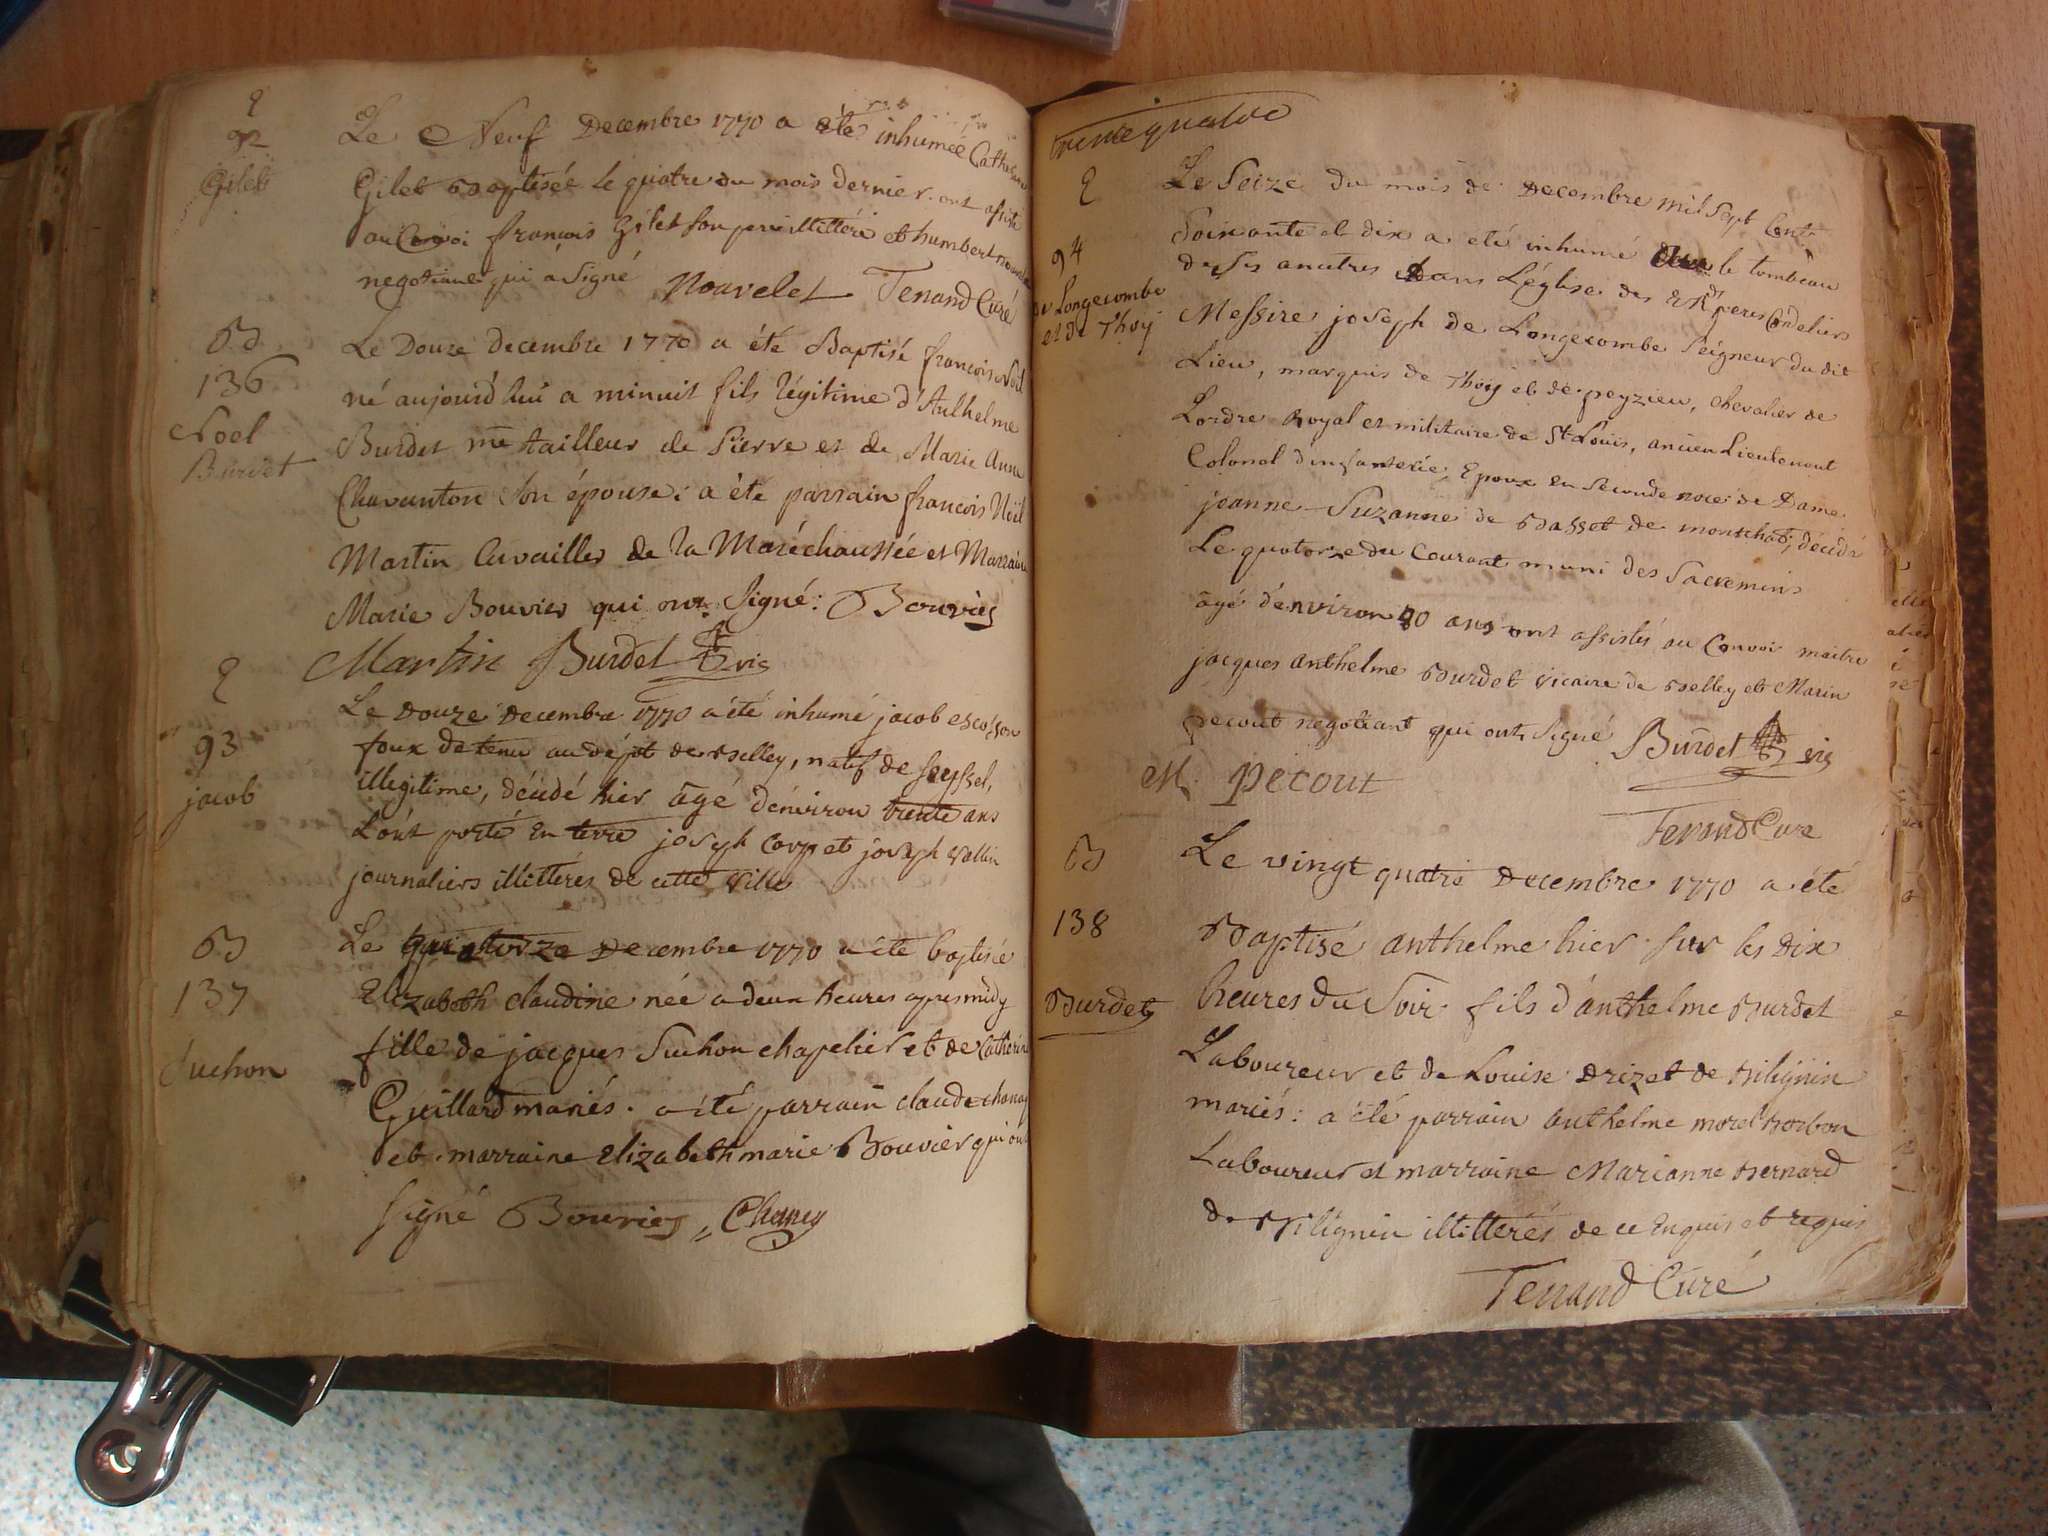 Le Neuf Decembre 1770 a été inhumée Catherine
Gilet Baptisée le quatre du mois dernier. ont assisté
au Convoi françois Gilet son pere illitéré et humbert
negotiant qui a signé Nouvelet Tenand Curé
Gilet
B
136
Noel
Burdet
Le Douze decembre 1770 a été Baptisé françois Noël
né aujourd'hui a minuit fils légitime d'Anthelme
Burdet me tailleur de Pierre et de Marie Anne
Chavanton son épouse: a été parrain françois Noël
Martin Cavailler de la Maréchaussée et Marraine
Marie Bouvier qui ont signé: Bouvier
Martin Burdet vic
93
jacob
Le Douze Decembre 1770 a été inhumé jacob escosson
foux detenu au dépt de Belley, natif de seyssel,
illegitime, décédé hier âgé d'environ trente ans
L'ont porté en terre joseph Corps et joseph Vallin
journaliers illitterés de cette ville
B
137
Suchon
Le quatorze Decembre 1770 a été baptisée
Elizabeth claudine née a deux heures apres midy
fille de jacques Suchon chapelier et de Catherine
Guillard mariés. a été parrain claude chanay
et marraine Elizabeth marie Bouvier qui ont
signé Bouvier, Chanay
trente quatre
94
de Longecombe
et de Thoy
Le Seize du mois de Decembre mil sept Cent
Soixante et dix a été inhumé le tombeau
de ses ancetres Dans L'église des RRds peres Cordeliers
Messire joseph de Longecombe Seigneur du dit
Lieu, marquis de Thoy et de peyzieu, chevalier de
Lordre Royal et militaire de St Louis, ancien Lieutenant
Colonel d'infanterie, Epoux en seconde noce de Dame
jeanne Suzanne de Basset de montchat, décédé
Le quatorze du Courant muni des Sacremens
âgé d'environ 80 ans ont assistés au Convoi maitre
jacques anthelme Burdet vicaire de Belley et Marin
pecout negotiant qui ont signé Burdet vic
M. Pecout
Tenand Curé
B
138
Burdet
Le vingt quatre Decembre 1770 a été
Baptisé anthelme hier sur les Dix
heures Du Soir fils d'anthelme Burdet
Laboureur et de Louise Drizet de Bilignin
mariés: a été parrain anthelme morel
Laboureur et marraine Marianne Bernard
de Bilignin illitterés de ce Enquis et requis
Tenand Curé